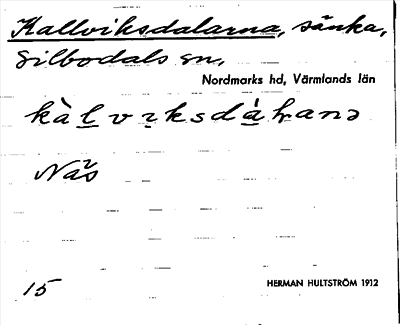 Kallviksdalarna, sänka,
Silbodals sn,
Nordmarks hd, Värmlands län
Näs
15 HERMAN HULTSTRÖM 1912